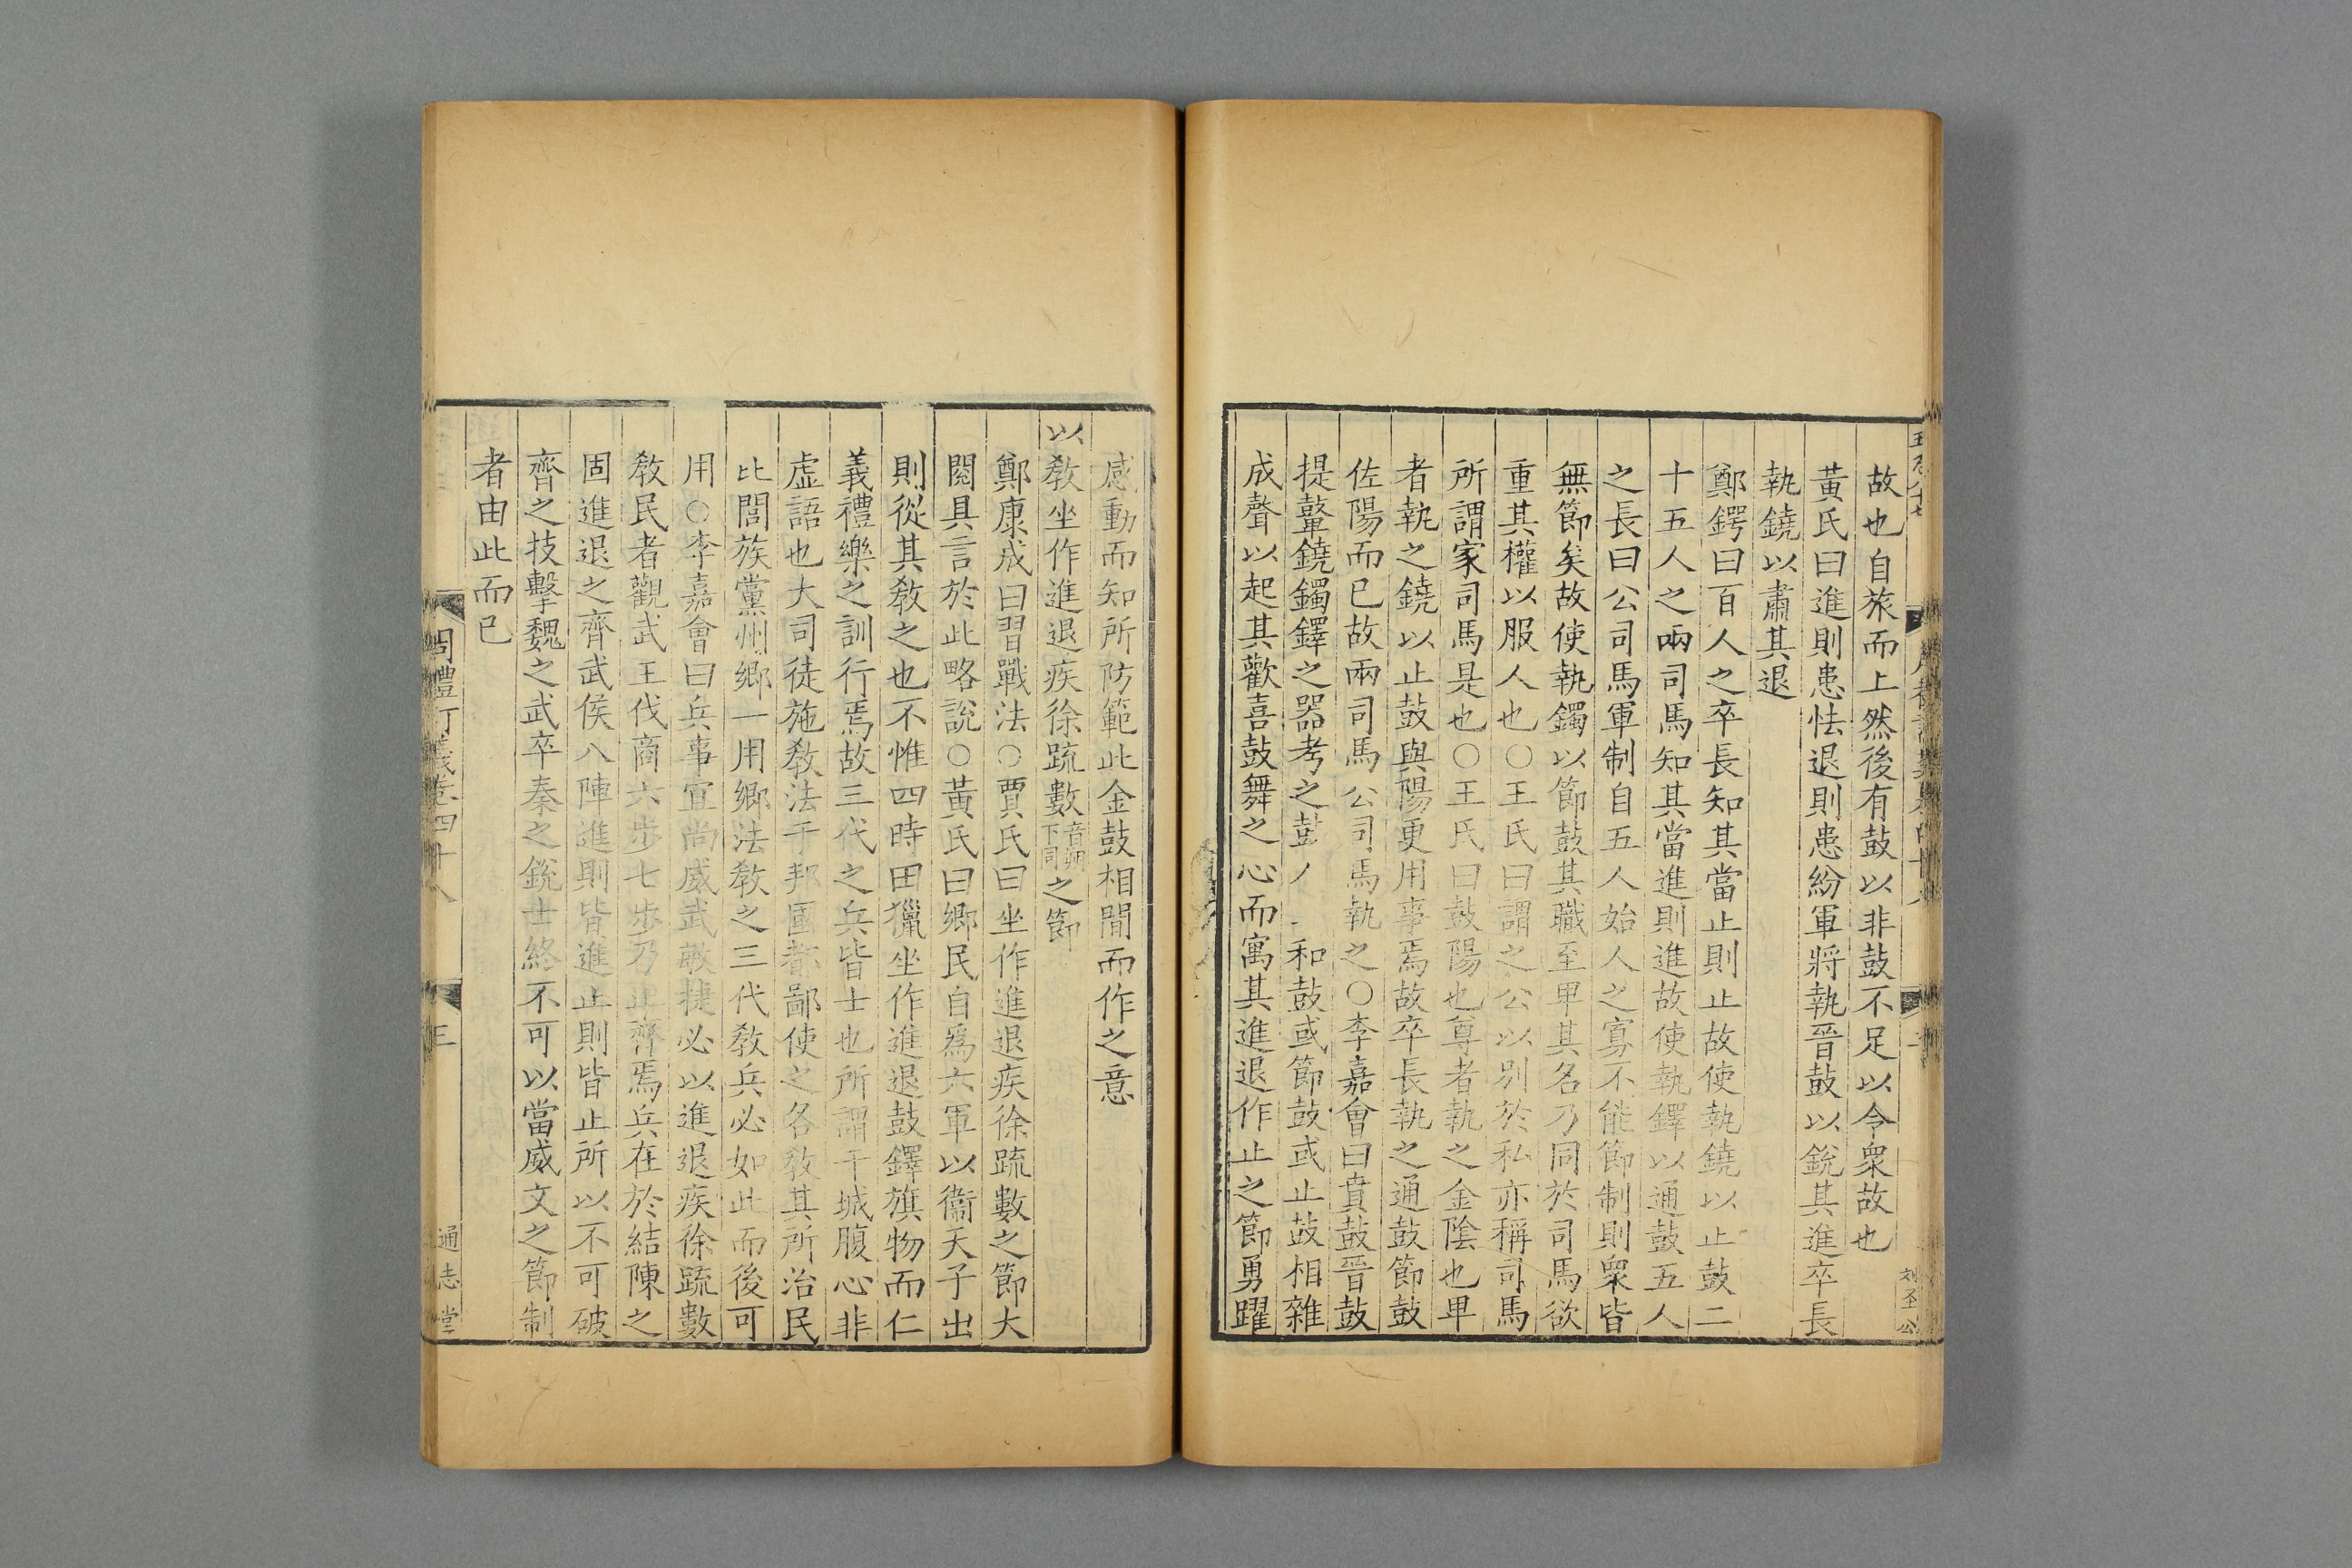 故也自旅而上然後有鼓以非鼓不足以令衆故也
黃氏曰進則患怯退則患紛軍將執晉鼓以銳其進卒長
執鐃以肅其退
鄭鍔曰百人之卒長知其當止則止故使執鐃以止鼓二
十五人之兩司馬知其當進則進故使執鐸以通鼓五人
之長曰公司馬軍制自五人始人之寡不能節制則衆皆
無節矣故使執鐲以節鼓其職至卑其名乃同於司馬欲
重其權以服人也○王氏曰謂之公以別於私亦稱司馬
所謂家司馬是也○王氏曰鼓陽也尊者執之金陰也卑
者執之鐃以止鼓與陽更用事焉故卒長執之通鼓節鼓
佐陽而已故兩司馬公司馬執之○李嘉會曰賁鼓晉鼓
提鼙鐃鐲鐸之器考之鼓人 和鼓或節鼓或止鼓相雜
成聲以起其歡喜鼓舞之心而寓其進退作止之節勇躍
感動而知所防範此金鼓相間而作之意
以敎坐作進退疾徐疏數音朔下同之節
鄭康成曰習戰法○賈氏曰坐作進退疾徐疏數之節大
閱具言於此略說○黃氏曰鄉民自爲六軍以衞天子出
則從其敎之也不惟四時田獵坐作進退鼓鐸旗物而仁
義禮樂之訓行焉故三代之兵皆士也所謂干城腹心非
虛語也大司徒施敎法于邦國都鄙使之各敎其所治民
比閭族黨州鄉一用鄉法敎之三代敎兵必如此而後可
用○李嘉會曰兵事宜尚威武敏捷必以進退疾徐疏數
敎民者觀武王伐商六步七步乃止齊焉兵在於結陳之
固進退之齊武侯八陣進則皆進止則皆止所以不可破
齊之技擊魏之武卒秦之銳士終不可以當威文之節制
者由此而已
周禮訂義卷四十八
三
通志堂